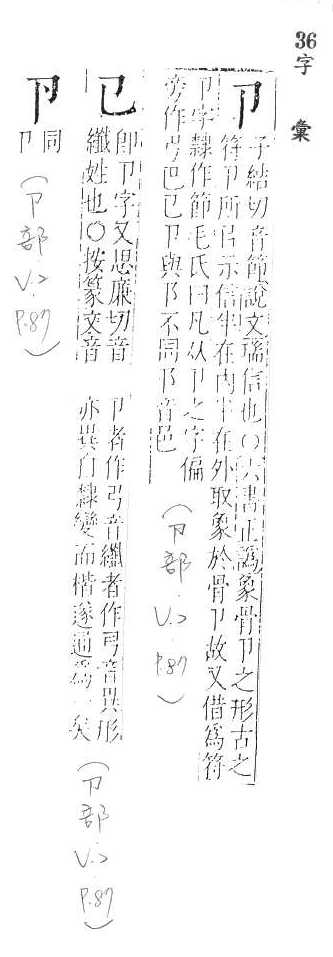 36
字彙
卪 子結切音節說文瑞信也〇六書正譌象骨卪之形古之
符卪所㠯示信半在内半在外取象於骨卪故又借爲符
卪字隷作節毛氏曰凡从卪之字偏
旁作㔾巴已卪與阝不同阝音邑
(卪部 V.2 P.87)
㔾 卽卪字又思廉切音
纖姓也〇按篆文音
卪者作弓音纖者作弓音異形
亦異自隷變而楷遂通爲一矣
(卪部 V.2 P.87)
卪 同
卩
(卪部 V.2 P.87)